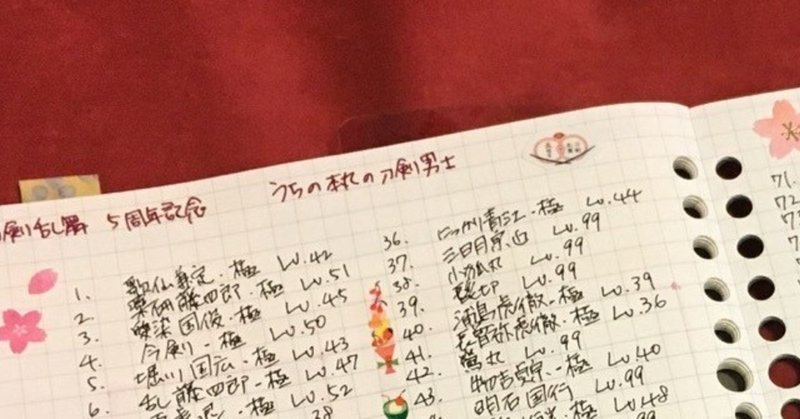 剣乱舞 5周年記念
うちの本丸の刀剣男士
1. 歌仙兼定・極 Lv.42
2. 薬研藤四郎・極 Lv.51
3. 愛染国俊・極 Lv.45
4. 今剣・極 Lv.50
5. 堀川国広・極 Lv.43
6. 乱藤四郎・極 Lv.47
Lv.52
38
36. にっかり青江・極 Lv.44
37. 三日月宗近 Lv.99
38. 小狐丸 Lv.99
39. 髭切 Lv.99
40. 浦島虎徹・極 Lv.39
41. 長曽祢虎徹・極 Lv.36
42. 鶯丸 Lv.99
43. 物吉貞宗・極 Lv.40
明石国行 Lv.99
極 Lv.48
71.
72.